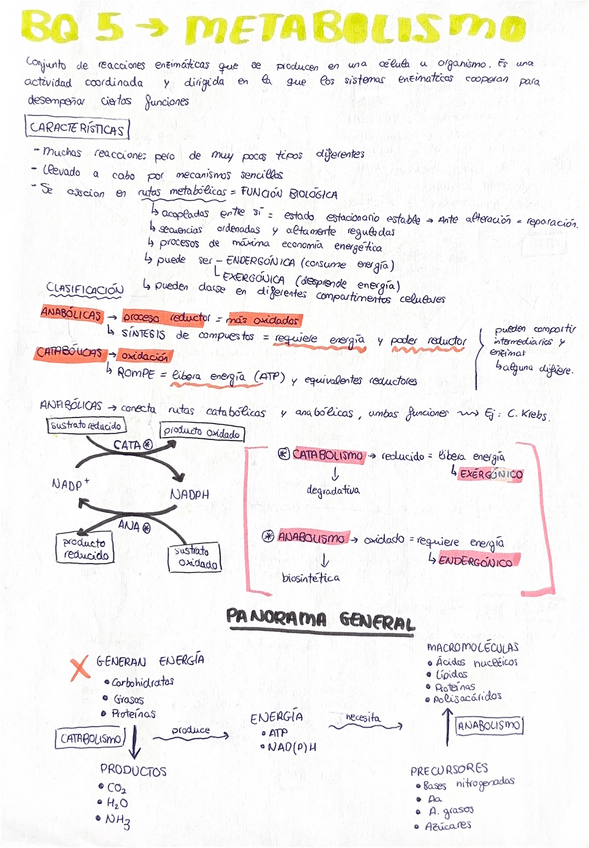 BQ 5 → METABOLISMO
Conjunto de reacciones enzimáticas que se producen en una célula u organismo. Es una
actividad coordinada y dirigida en la que los sistemas enzimáticos cooperan para
desempeñar ciertas funciones
CARACTERÍSTICAS
- Muchas reacciones pero de muy pocos tipos diferentes
- Llevado a cabo por mecanismos sencillos
- Se asocian en rutas metabólicas = FUNCIÓN BIOLÓGICA
↳ acopladas entre sí = estado estacionario estable → Ante alteración = reparación.
↳ secuencias ordenadas y altamente reguladas
↳ procesos de máxima economía energética
↳ puede ser - ENDERGÓNICA (consume energía)
↳ EXERGÓNICA (desprende energía)
↳ pueden darse en diferentes compartimentos celulares
CLASIFICACIÓN
ANABÓLICAS → proceso reductor = más oxidados
↳ SÍNTESIS de compuestos = requiere energía y poder reductor
CATABÓLICAS → oxidación
↳ ROMPE = libera energía (ATP) y equivalentes reductores
pueden compartir
intermediarios y
enzimas
↳ alguna difiere.
ANFIBÓLICAS → conecta rutas catabólicas y anabólicas, ambas funciones ⟿ Ej: C. Krebs.
sustrato reducido
producto oxidado
CATA ⊛
NADP⁺
NADPH
ANA ⊛
producto
reducido
sustrato
oxidado
⊛ CATABOLISMO → reducido = libera energía
↳ EXERGÓNICO
↓
degradativa
⊛ ANABOLISMO → oxidado = requiere energía
↳ ENDERGÓNICO
↓
biosintética
PANORAMA GENERAL
X GENERAN ENERGÍA
• Carbohidratos
• Grasas
• Proteínas
CATABOLISMO
produce
PRODUCTOS
• CO₂
• H₂O
• NH₃
ENERGÍA
• ATP
• NAD(P)H
necesita
MACROMOLÉCULAS
• Ácidos nucléicos
• Lípidos
• Proteínas
• Polisacáridos
ANABOLISMO
PRECURSORES
• Bases nitrogenadas
• Aa
• A. grasos
• Azúcares